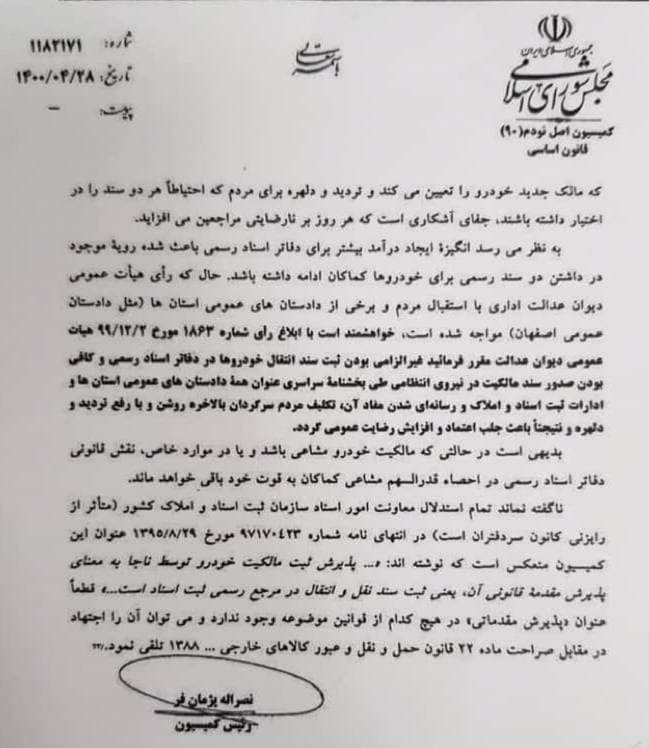 شماره: ۱۱۸۲۱۷۱
تاریخ: ۱۴۰۰/۰۴/۲۸
پیوست: –
باسمه تعالی
جمهوری اسلامی ایران
مجلس شورای اسلامی
کمیسیون اصل نودم(۹۰)
قانون اساسی
که مالک جدید خودرو را تعیین می کند و تردید و دلهره برای مردم که احتیاطاً هر دو سند را در
اختیار داشته باشند، جفای آشکاری است که هر روز بر نارضایتی مراجعین می افزاید.
به نظر می رسد انگیزهٔ ایجاد درآمد بیشتر برای دفاتر اسناد رسمی باعث شده رویهٔ موجود
در داشتن دو سند رسمی برای خودروها کماکان ادامه داشته باشد. حال که رأی هیأت عمومی
دیوان عدالت اداری با استقبال مردم و برخی از دادستان های عمومی استان ها (مثل دادستان
عمومی اصفهان) مواجه شده است، خواهشمند است با ابلاغ رأی شماره ۱۸۶۳ مورخ ۹۹/۱۲/۲ هیات
عمومی دیوان عدالت مقرر فرمائید غیرالزامی بودن ثبت سند انتقال خودروها در دفاتر اسناد رسمی و کافی
بودن صدور سند مالکیت در نیروی انتظامی طی بخشنامهٔ سراسری عنوان همهٔ دادستان های عمومی استان ها و
ادارات ثبت اسناد و املاک و رسانه‌ای شدن مفاد آن، تکلیف مردم سرگردان بالاخره روشن و با رفع تردید و
دلهره و نتیجتاً باعث جلب اعتماد و افزایش رضایت عمومی گردد.
بدیهی است در حالتی که مالکیت خودرو مشاعی باشد و یا در موارد خاص، نقش قانونی
دفاتر اسناد رسمی در احصاء قدرالسهم مشاعی کماکان به قوت خود باقی خواهد ماند.
ناگفته نماند تمام استدلال معاونت امور اسناد سازمان ثبت اسناد و املاک کشور (متأثر از
رایزنی کانون سردفتران است) در انتهای نامه شماره ۹۷۱۷۰۴۲۳ مورخ ۱۳۹۵/۸/۲۹ عنوان این
کمیسیون منعکس است که نوشته اند: «... پذیرش ثبت مالکیت خودرو توسط ناجا به معنای
پذیرش مقدمهٔ قانونی آن، یعنی ثبت سند نقل و انتقال در مرجع رسمی ثبت اسناد است...» قطعاً
عنوان «پذیرش مقدماتی» در هیچ کدام از قوانین موضوعه وجود ندارد و می توان آن را اجتهاد
در مقابل صراحت ماده ۲۲ قانون حمل و نقل و عبور کالاهای خارجی ... ۱۳۸۸ تلقی نمود./۲۲
نصراله پژمان فر
رئیس کمیسیون